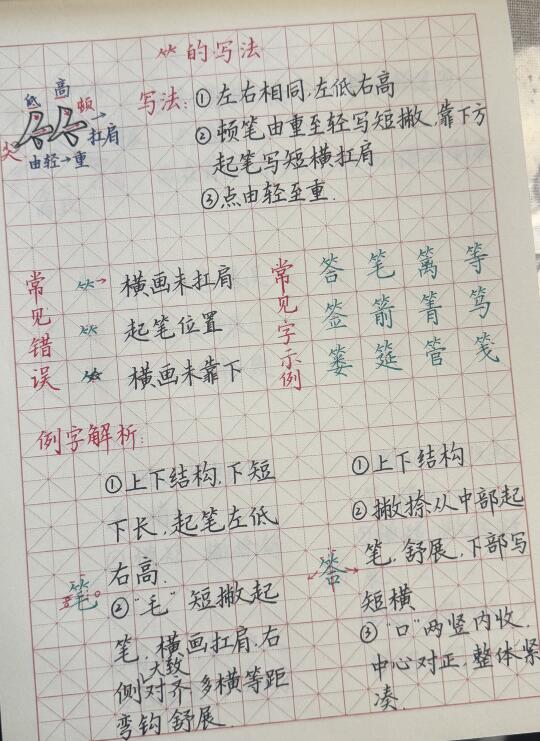 ⺮的写法
低 高 顿
尖
扛肩
由轻→重
写法：①左右相同，左低右高
②顿笔由重至轻写短撇，靠下方
起笔写短横扛肩
③点由轻至重.
常见错误
⺮ 横画未扛肩
⺮ 起笔位置
⺮ 横画未靠下
常见字示例
答 笔 篱 等
签 箭 箐 笃
篓 筵 管 笺
例字解析：
笔
①上下结构，下短
下长，起笔左低
右高.
②“毛”短撇起
笔，横画扛肩，右
侧大致对齐 多横等距
弯钩舒展
答
①上下结构
②撇捺从中部起
笔，舒展，下部写
短横
③“口”两竖内收，
中心对正，整体紧
凑.